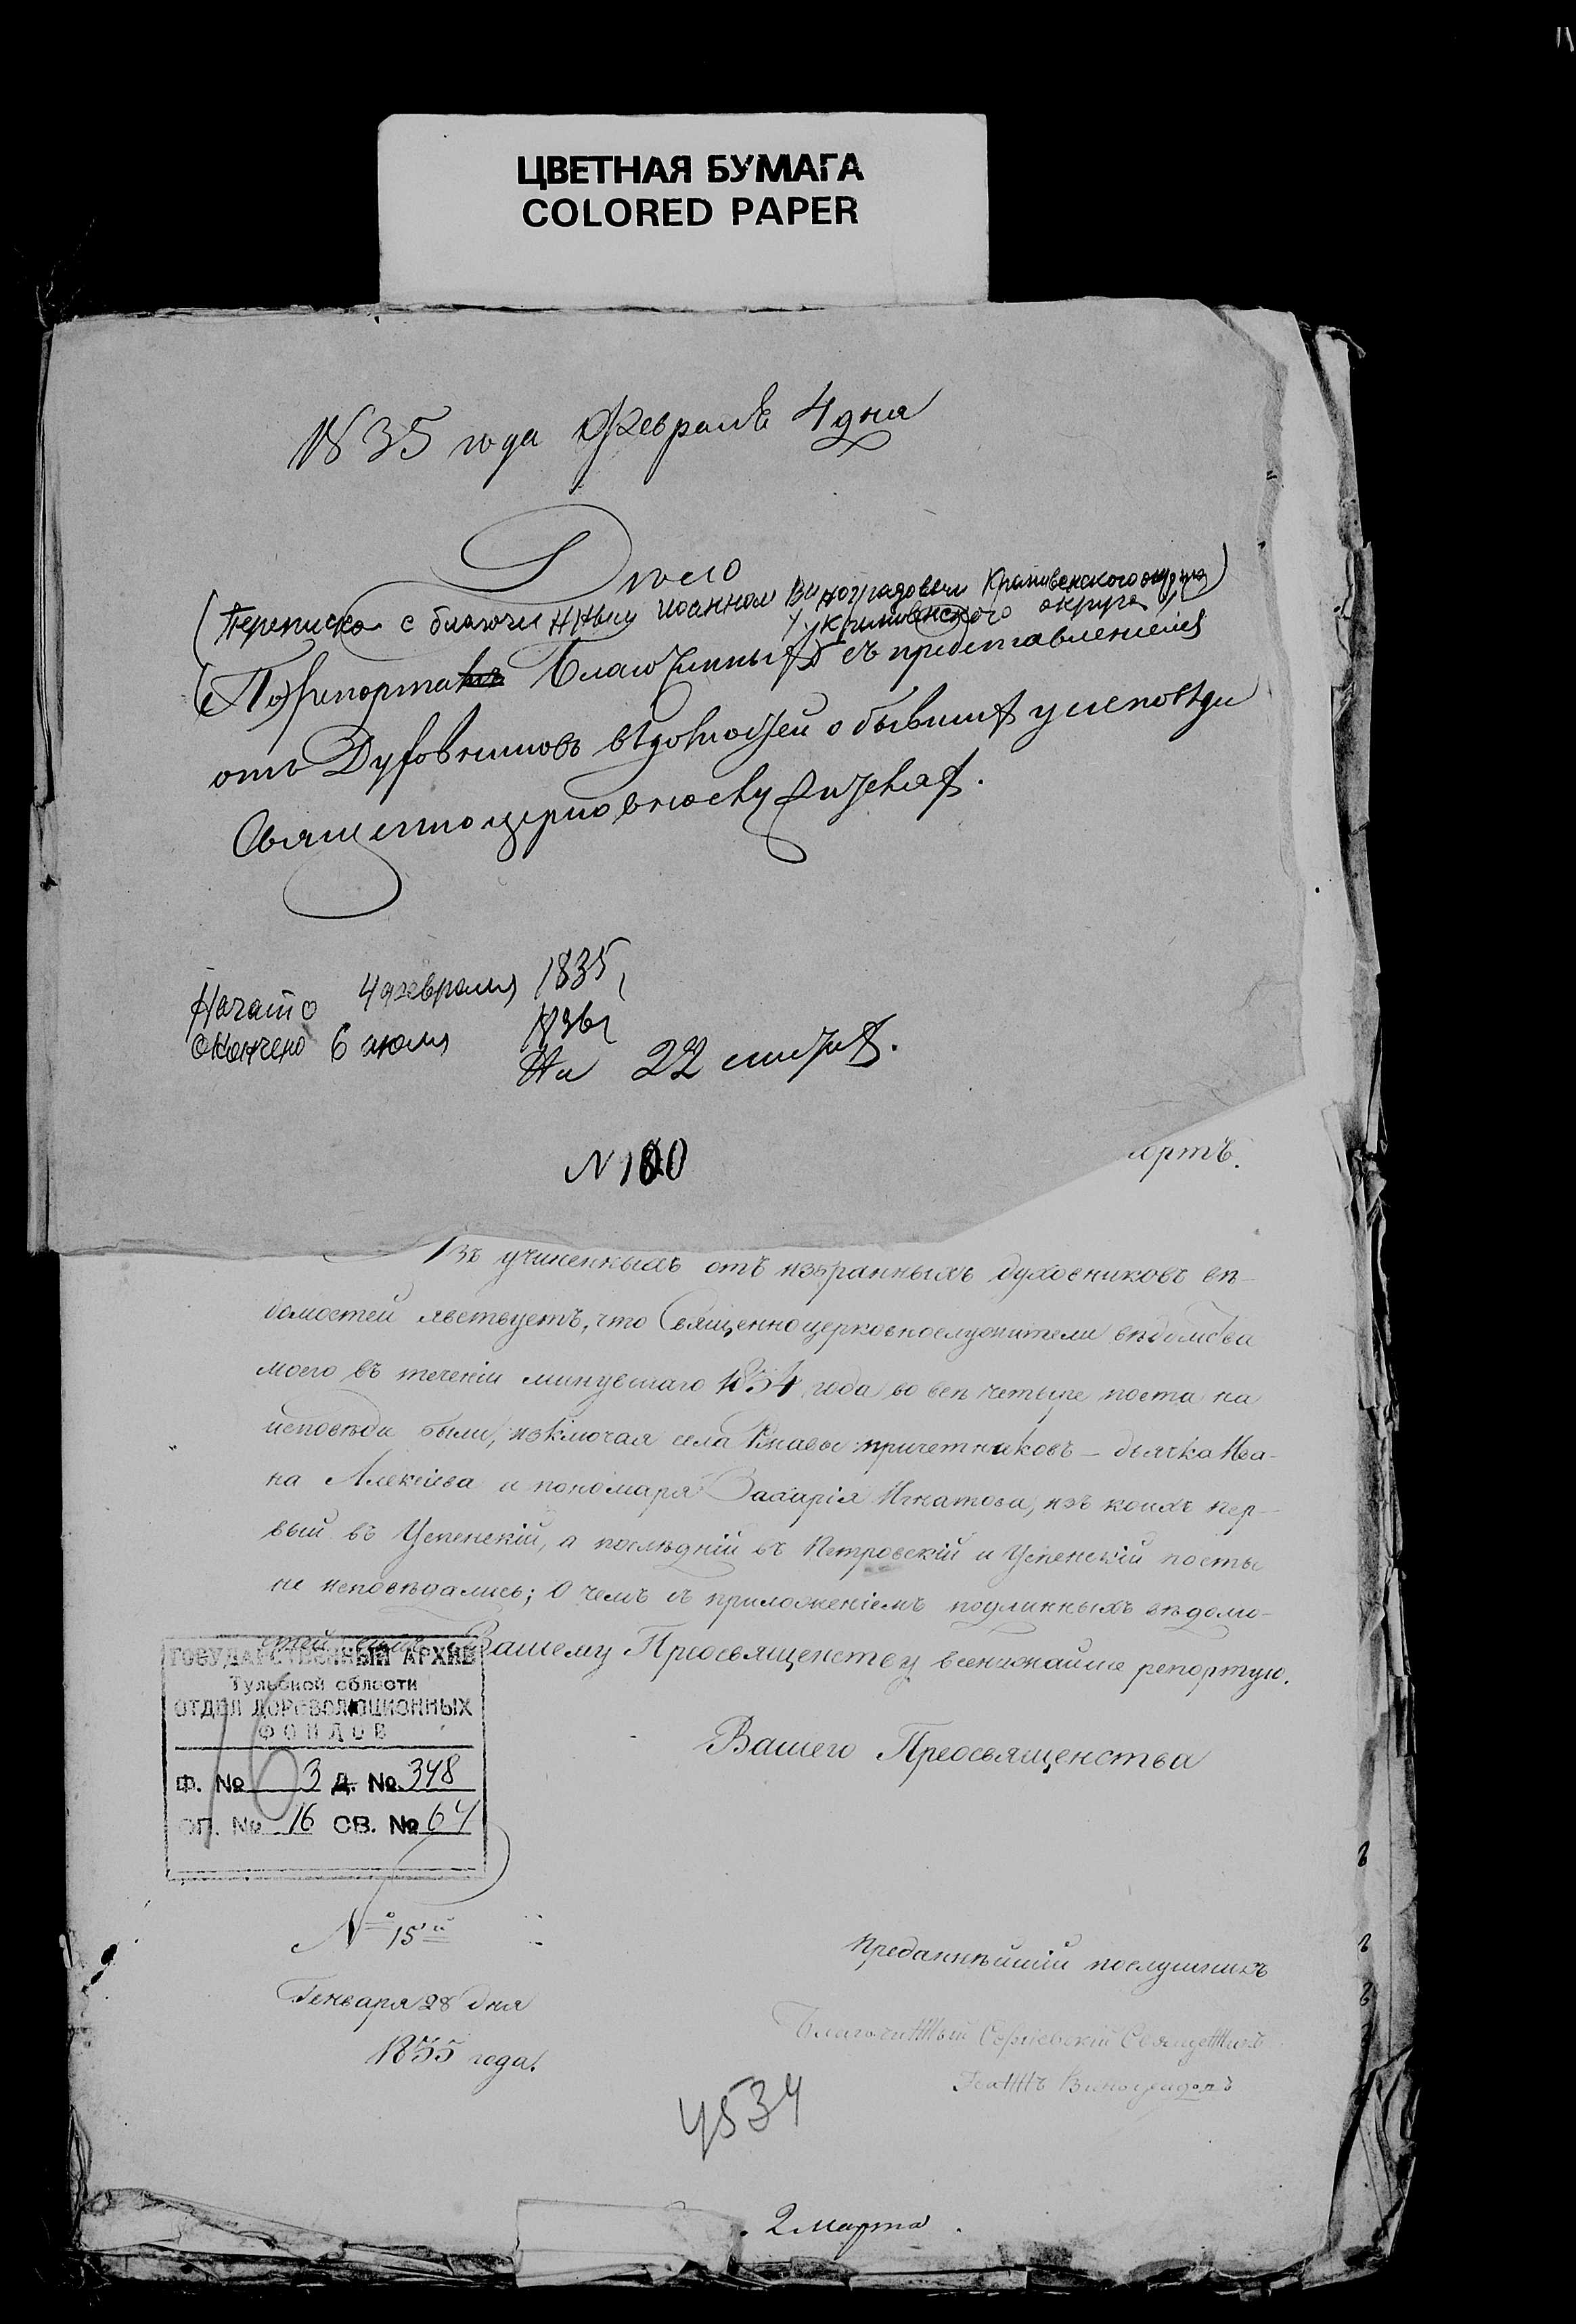 ЦВЕТНАЯ БУМАГА
COLORED PAPER
1835 года Февраля 4 дня
Дѣло
(Переписка с благочинным Иоанном Виноградовым Крапивенского округа)
Крапивенского округа
(По) репортамъ Благочинныхъ съ представленіемъ
отъ Духовниковъ вѣдомостей о бывшихъ у исповѣди
Священноцерковнослужителяхъ.
Начато 4 февраля 1835
Окончено 6 июля 1836
На 22 листахъ.
N 100
портъ.
Изъ учиненныхъ отъ избранныхъ духовниковъ вѣ-
домостей явствуетъ, что Священноцерковнослужители вѣдомства
моего въ теченіи минувшаго 1834 года во всѣ четыре поста на
исповѣди были, изключая села причетниковъ – дьячка Ива-
на Алексѣева и пономаря Захарія Игнатова, изъ коихъ пер-
вый въ Успенскій, а послѣдній въ Петровскій и Успенскій посты
не исповѣдались; О чемъ съ приложеніемъ подлинныхъ вѣдомо-
стей Вашему Преосвященству всенижайше репортую.
ГОСУДАРСТВЕННЫЙ АРХИВ
Тульской области
ОТДЕЛ ДОРЕВОЛЮЦИОННЫХ
ФОНДОВ
Ф. № 3 Д. № 348
ОП. № 16 СВ. № 64
Вашего Преосвященства
№ 15й
Генваря 28 дня
1835 года.
Преданнѣйшій послушникъ
Благочинный Сергіевскій Священникъ
Іоаннъ Виноградовъ
4534
2 марта